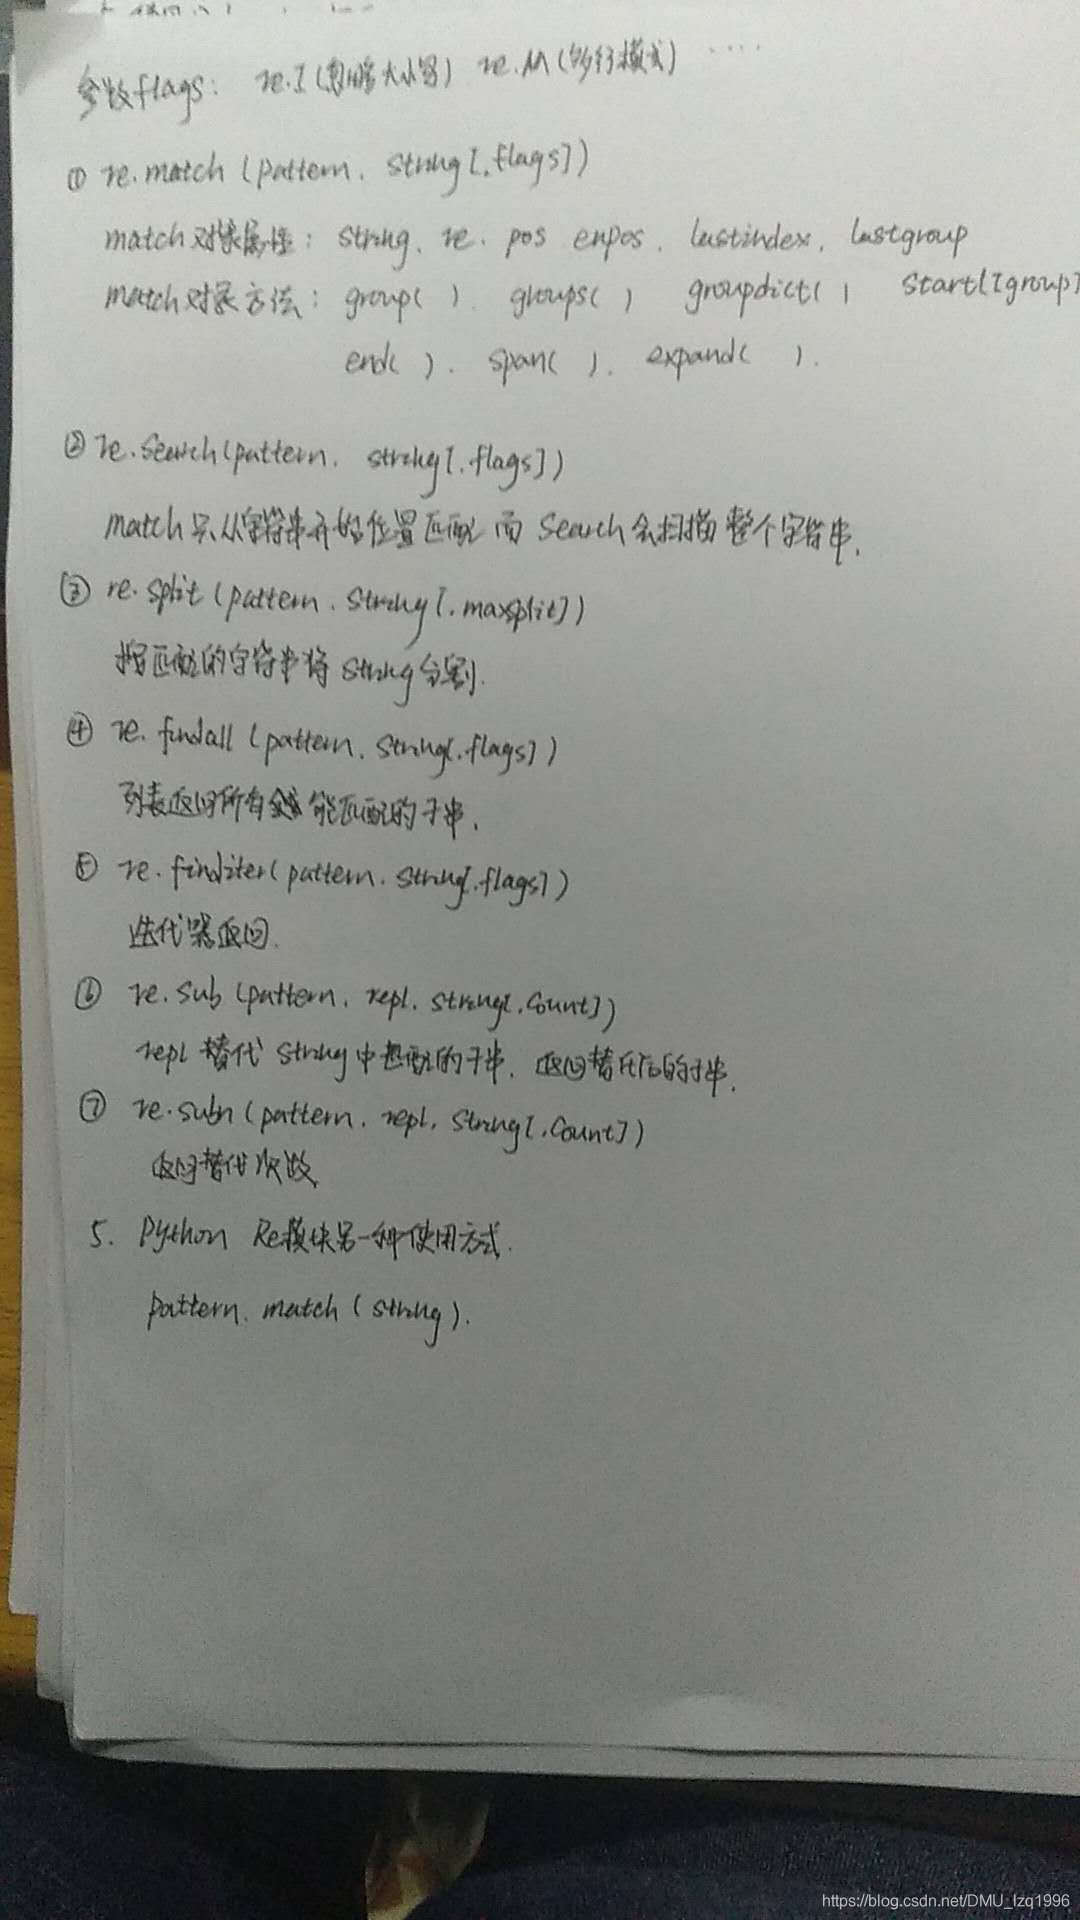 参数flags: re.I(忽略大小写) re.M(多行模式) ....
① re.match (pattern, string[,flags])
match对象属性: string, re. pos enpos. lastindex, lastgroup
match对象方法: group( ). groups( ) groupdict( ) start([group]
end( ). span( ). expand( ).
② re.search(pattern, string[,flags])
match只从字符串开始位置匹配 而 search会扫描整个字符串.
③ re.split (pattern, string[,maxsplit])
按匹配的字符串将 string分割.
④ re.findall (pattern, string[,flags])
列表返回所有 能匹配的子串.
⑤ re.finditer(pattern, string[,flags])
迭代器返回.
⑥ re.sub (pattern, repl, string[,count])
repl 替代 string中匹配的子串, 返回替代后的子串.
⑦ re.subn (pattern, repl, string[,count])
返回替代次数
5. Python Re模块另一种使用方式.
pattern.match (string).
https://blog.csdn.net/DMU_lzq1996